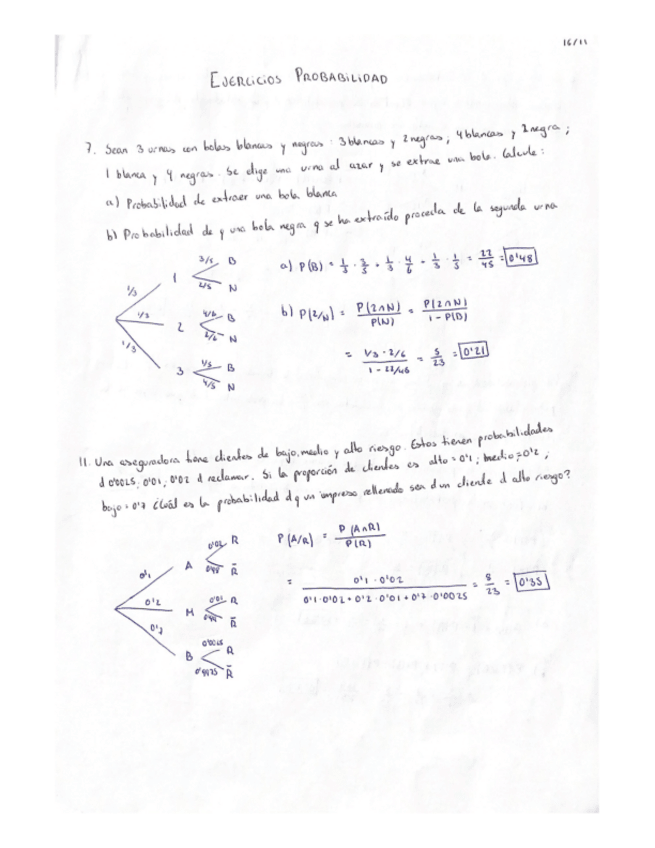 16/11
EJERCICIOS PROBABILIDAD
7. Sean 3 urnas con bolas blancas y negras: 3 blancas y 2 negras; 4 blancas y 2 negra;
1 blanca y 4 negras. Se elige una urna al azar y se extrae una bola. Calcule:
a) Probabilidad de extraer una bola blanca
b) Probabilidad de q una bola negra q se ha extraído proceda de la segunda urna
1/3 1 3/5 B
2/5 N
1/3 2 4/6 B
2/6 N
1/3 3 1/5 B
4/5 N
a) P(B) = 1/3 · 3/5 + 1/3 · 4/6 + 1/3 · 1/5 = 22/45 = 0'48
b) P(2/N) = P(2∩N)/P(N) = P(2∩N)/1 - P(B)
= 1/3 · 2/6 / 1 - 22/45 = 5/23 = 0'21
11. Una aseguradora tiene clientes de bajo, medio y alto riesgo. Estos tienen probabilidades
d 0'0025, 0'01, 0'02 d reclamar. Si la proporción de clientes es alto = 0'1; medio = 0'2;
bajo = 0'7 ¿Cuál es la probabilidad d q un impreso rellenado sea d un cliente d alto riesgo?
0'1 A 0'02 R
0'98 R̄
0'2 M 0'01 R
0'99 R̄
0'7 B 0'0025 R
0'9975 R̄
P(A/R) = P(A∩R)/P(R)
= 0'1 · 0'02 / 0'1·0'02 + 0'2·0'01 + 0'7·0'0025 = 8/23 = 0'35